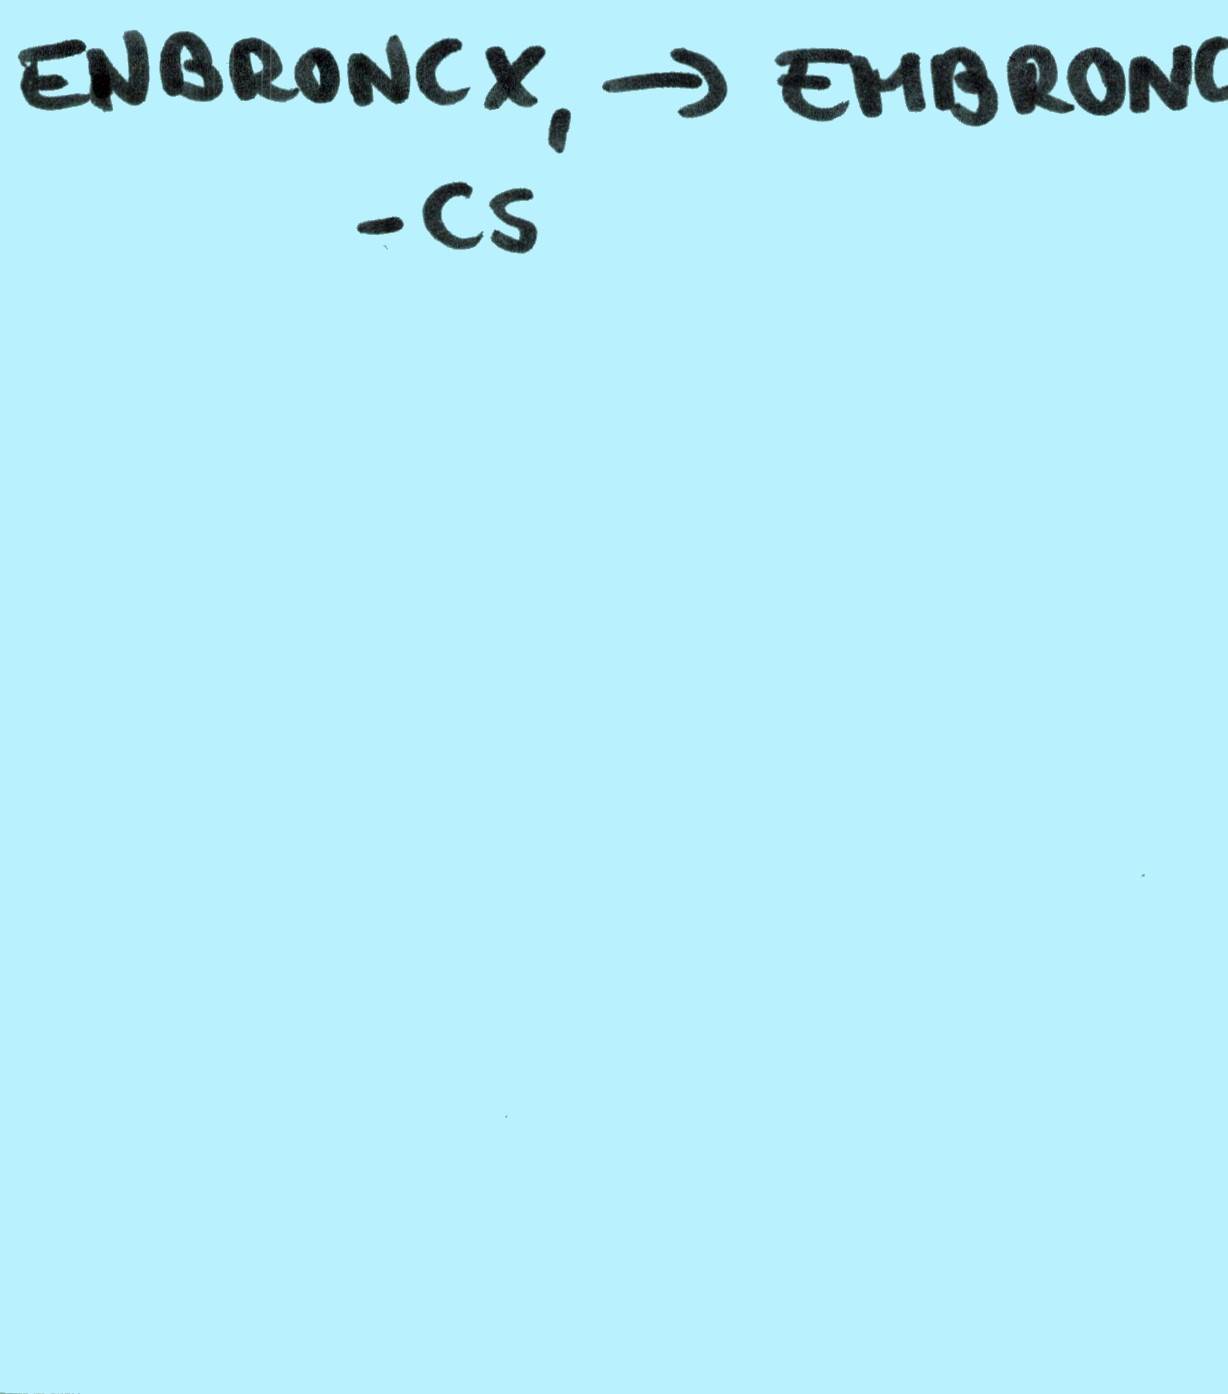 ENBRONCX, → EMBRONC
-CS